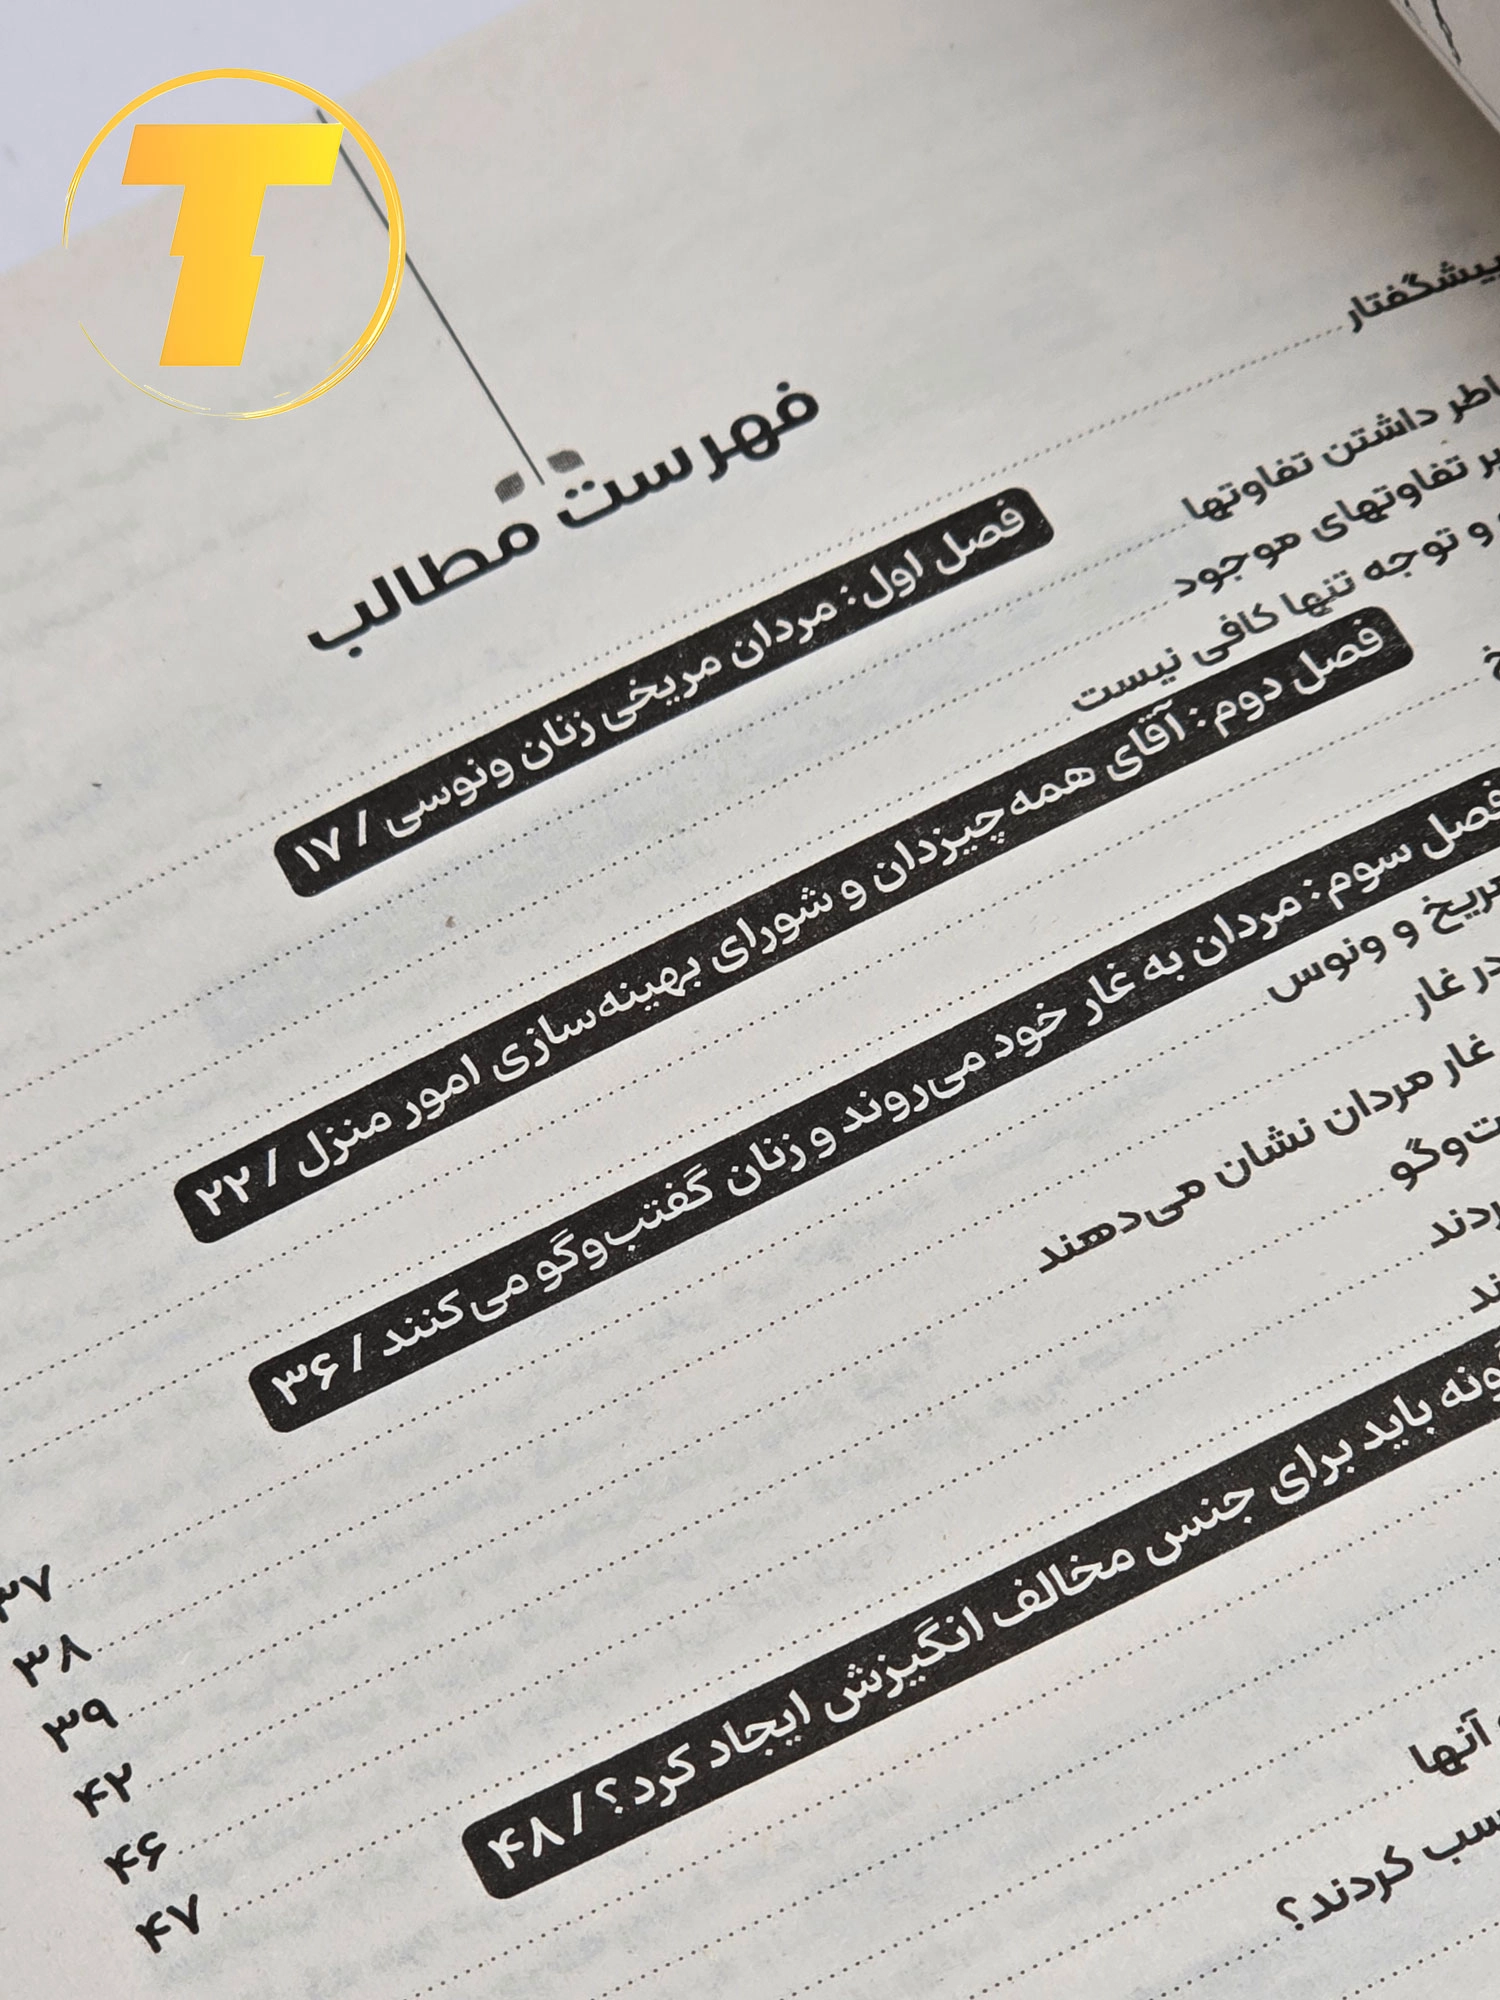 T
فهرست مطالب
پیشگفتار
داشتن تفاوتها
تفاوتهای موجود
و توجه تنها کافی نیست
فصل اول: مردان مریخی زنان ونوسی / ۱۷
فصل دوم: آقای همه‌چیزدان و شورای بهینه‌سازی امور منزل / ۲۲
فصل سوم: مردان به غار خود می‌روند و زنان گفتب‌وگو می‌کنند / ۳۶
مریخ و ونوس ۳۷
در غار ۳۸
غار مردان نشان می‌دهند ۳۹
۴۲
۴۶
۴۷
باید برای جنس مخالف انگیزش ایجاد کرد؟ / ۴۸
آنها
کردند؟